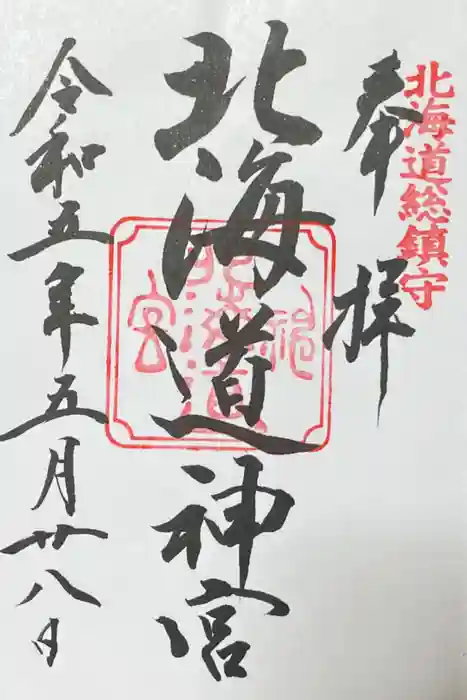 北海道総鎮守
奉拝
北海道神宮
北海道神宮
令和五年五月廿八日